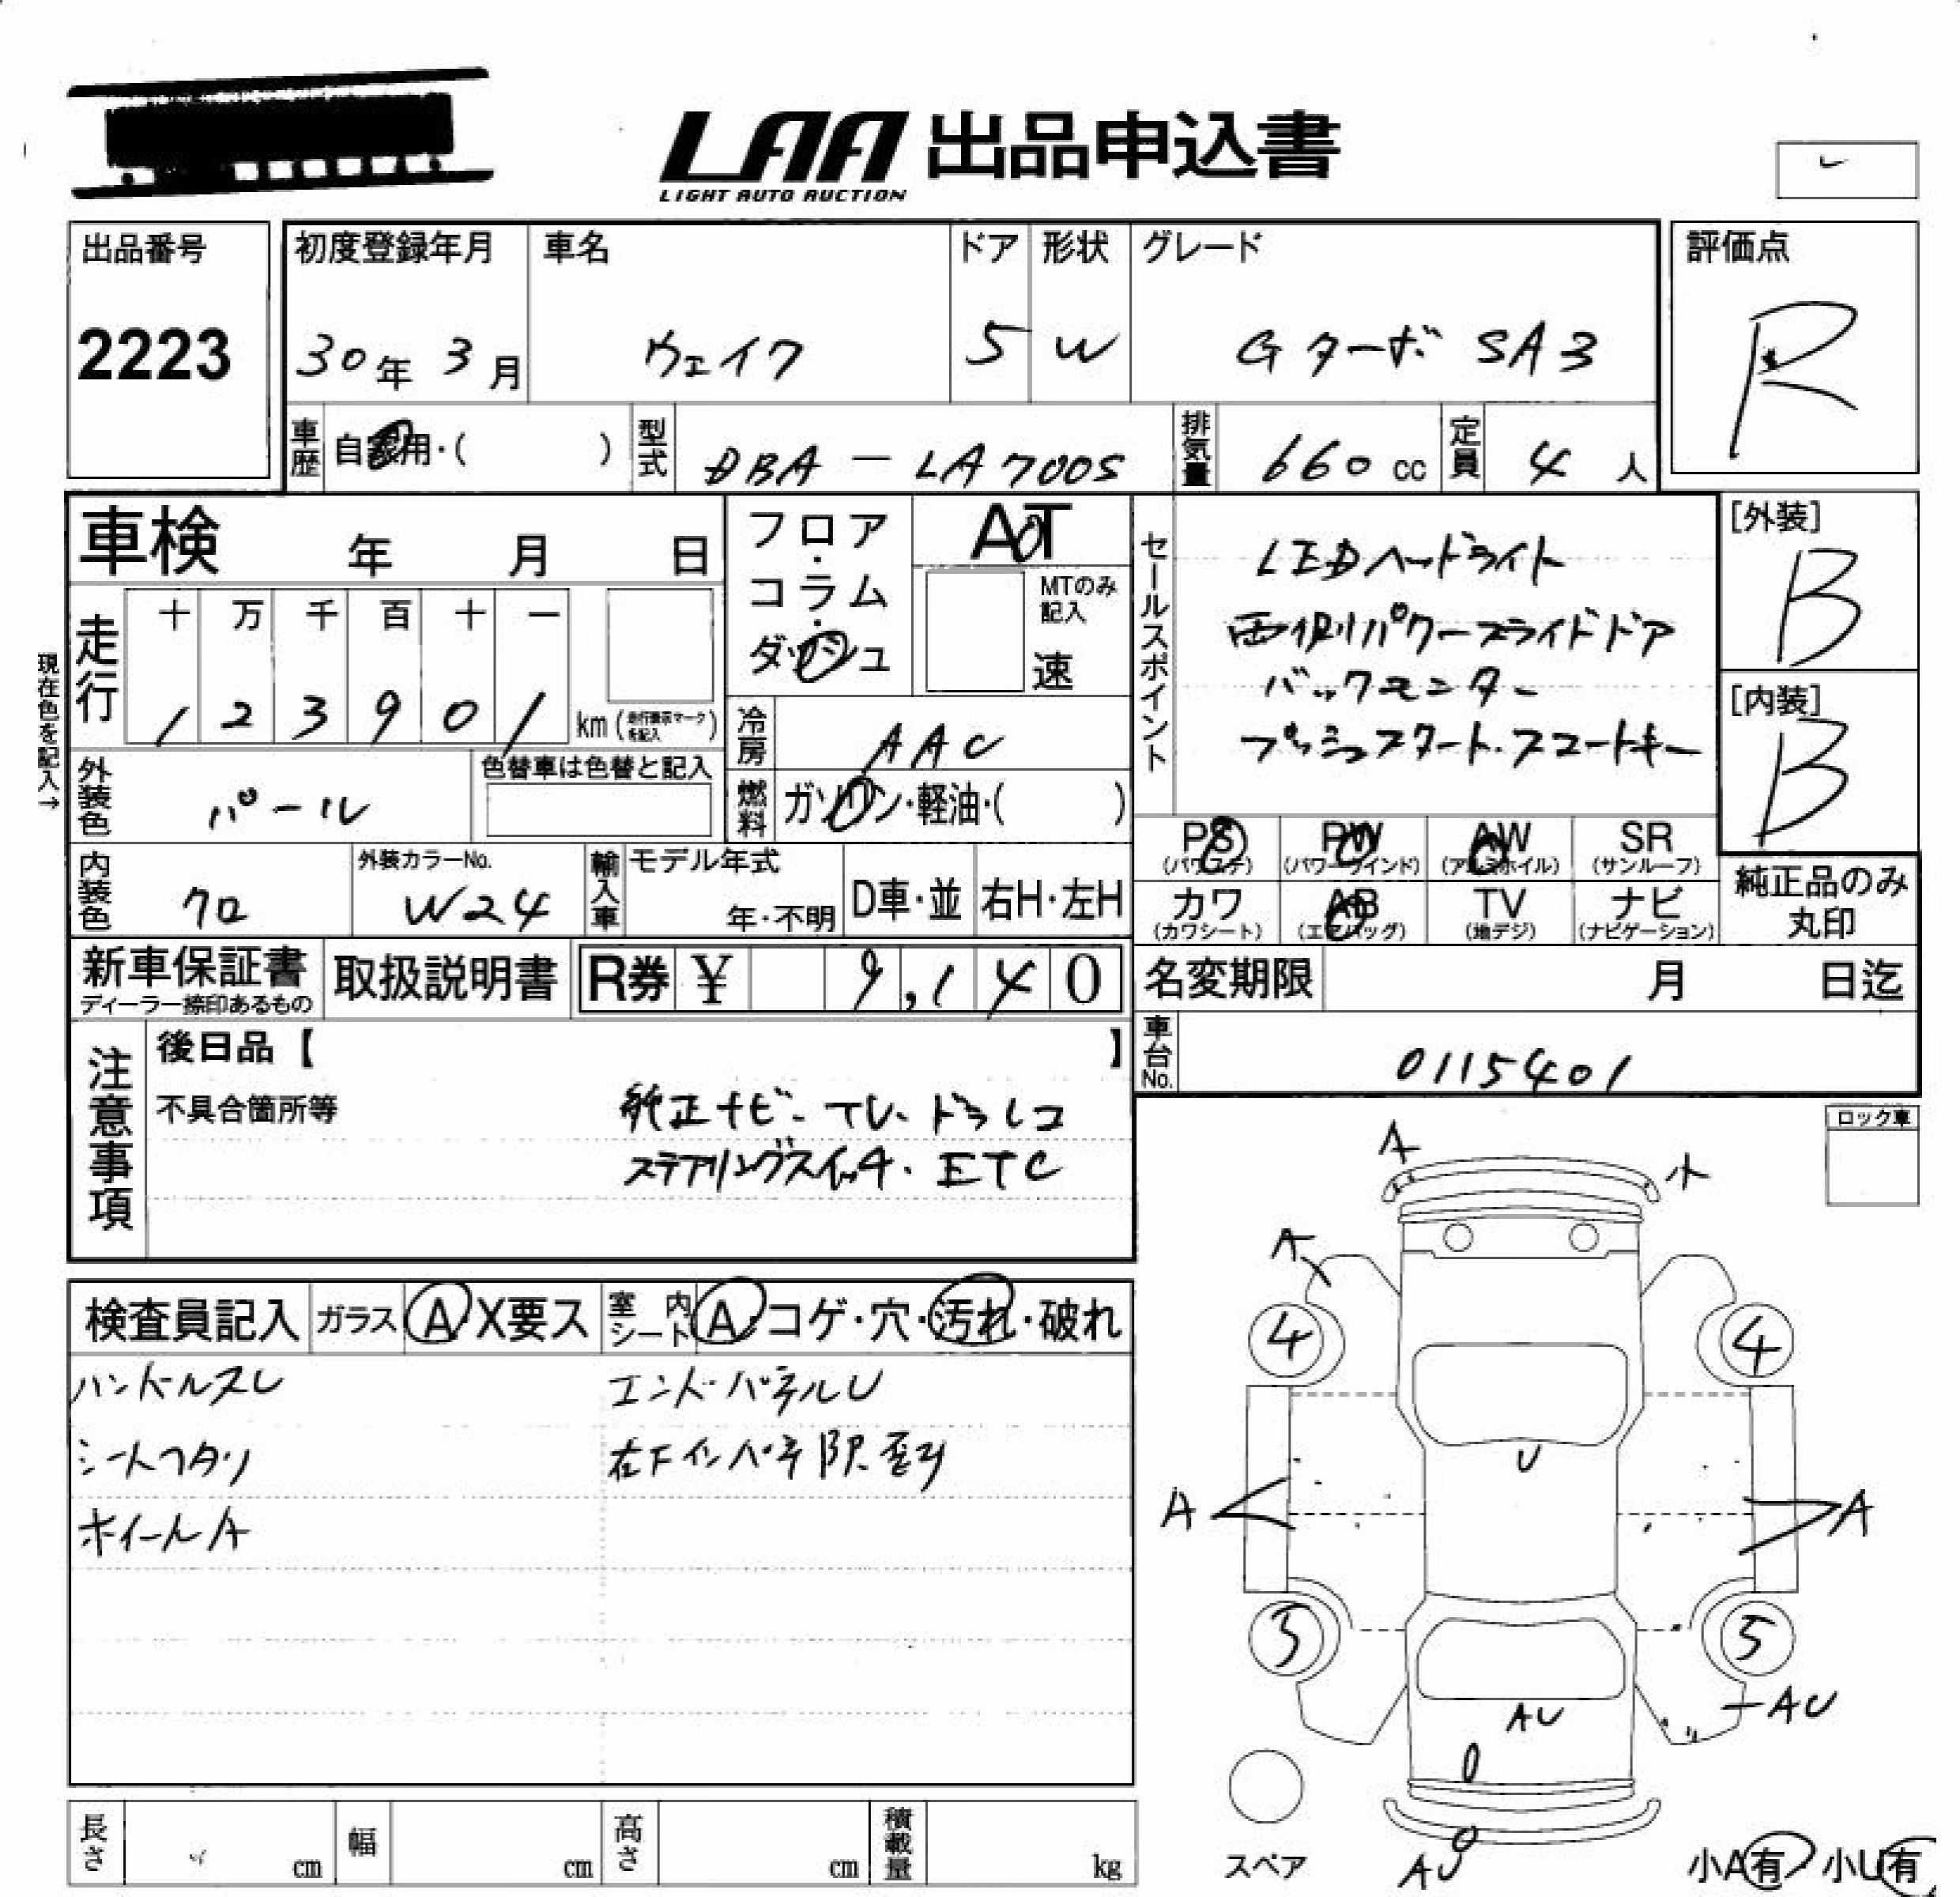 LAA 出品申込書
LIGHT AUTO AUCTION
出品番号
2223
初度登録年月
30年 3月
車名
ウェイク
ドア
5
形状
W
グレード
Gターボ SA3
評価点
R
車歴
自家用・( )
型式
DBA-LA700S
排気量
660 cc
定員
4 人
車検 年 月 日
フロア・コラム・ダッシュ
AT
MTのみ記入
速
セールスポイント
LEDヘッドライト
両側パワースライドドア
バックモニター
プッシュスタート・スマートキー
[外装]
B
[内装]
B
現在色を記入→
走行
十 万 千 百 十 一
1 2 3 9 0 1
km (走行表示マークを記入)
冷房
AAC
外装色
パール
色替車は色替と記入
燃料
ガソリン・軽油・( )
PS (パワステ)
PW (パワーウインド)
AW (アルミホイル)
SR (サンルーフ)
カワ (カワシート)
AB (エアバッグ)
TV (地デジ)
ナビ (ナビゲーション)
純正品のみ丸印
内装色
クロ
外装カラーNo.
W24
輸入車
モデル年式
年・不明
D車・並
右H・左H
新車保証書
ディーラー捺印あるもの
取扱説明書
R券 ¥ 9,140
名変期限 月 日迄
車台No.
0115401
注意事項
後日品【 】
不具合箇所等
純正ナビ・TV・ドラレコ
ステアリングスイッチ・ETC
ロック車
検査員記入
ガラス A X要ス
室内シート A・コゲ・穴・汚れ・破れ
ハンドルスレ
エンドパネルU
シートヘタリ
右Fインパネ隙歪み
ホイールA
A
小
A
4
4
U
A
A
5
5
AU
AU
U
AU
スペア
小A有 小U有
長さ cm
幅 cm
高さ cm
積載量 kg